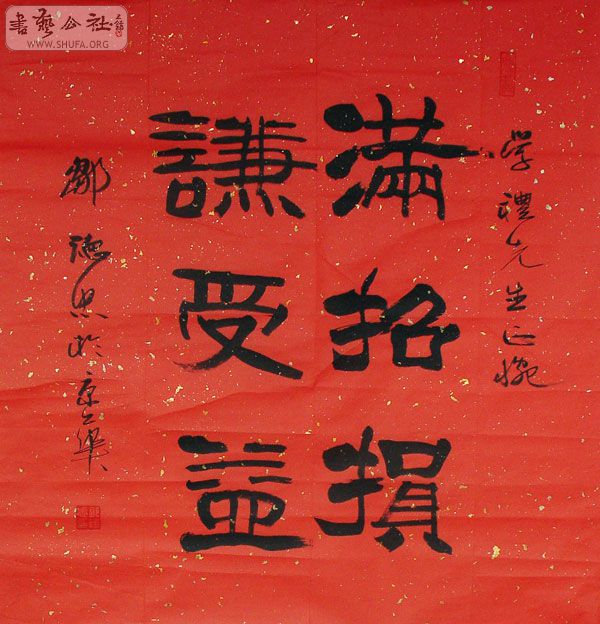 書藝公社
WWW.SHUFA.ORG
学禮先生正腕
滿招損
謙受益
鄒德忠於京華